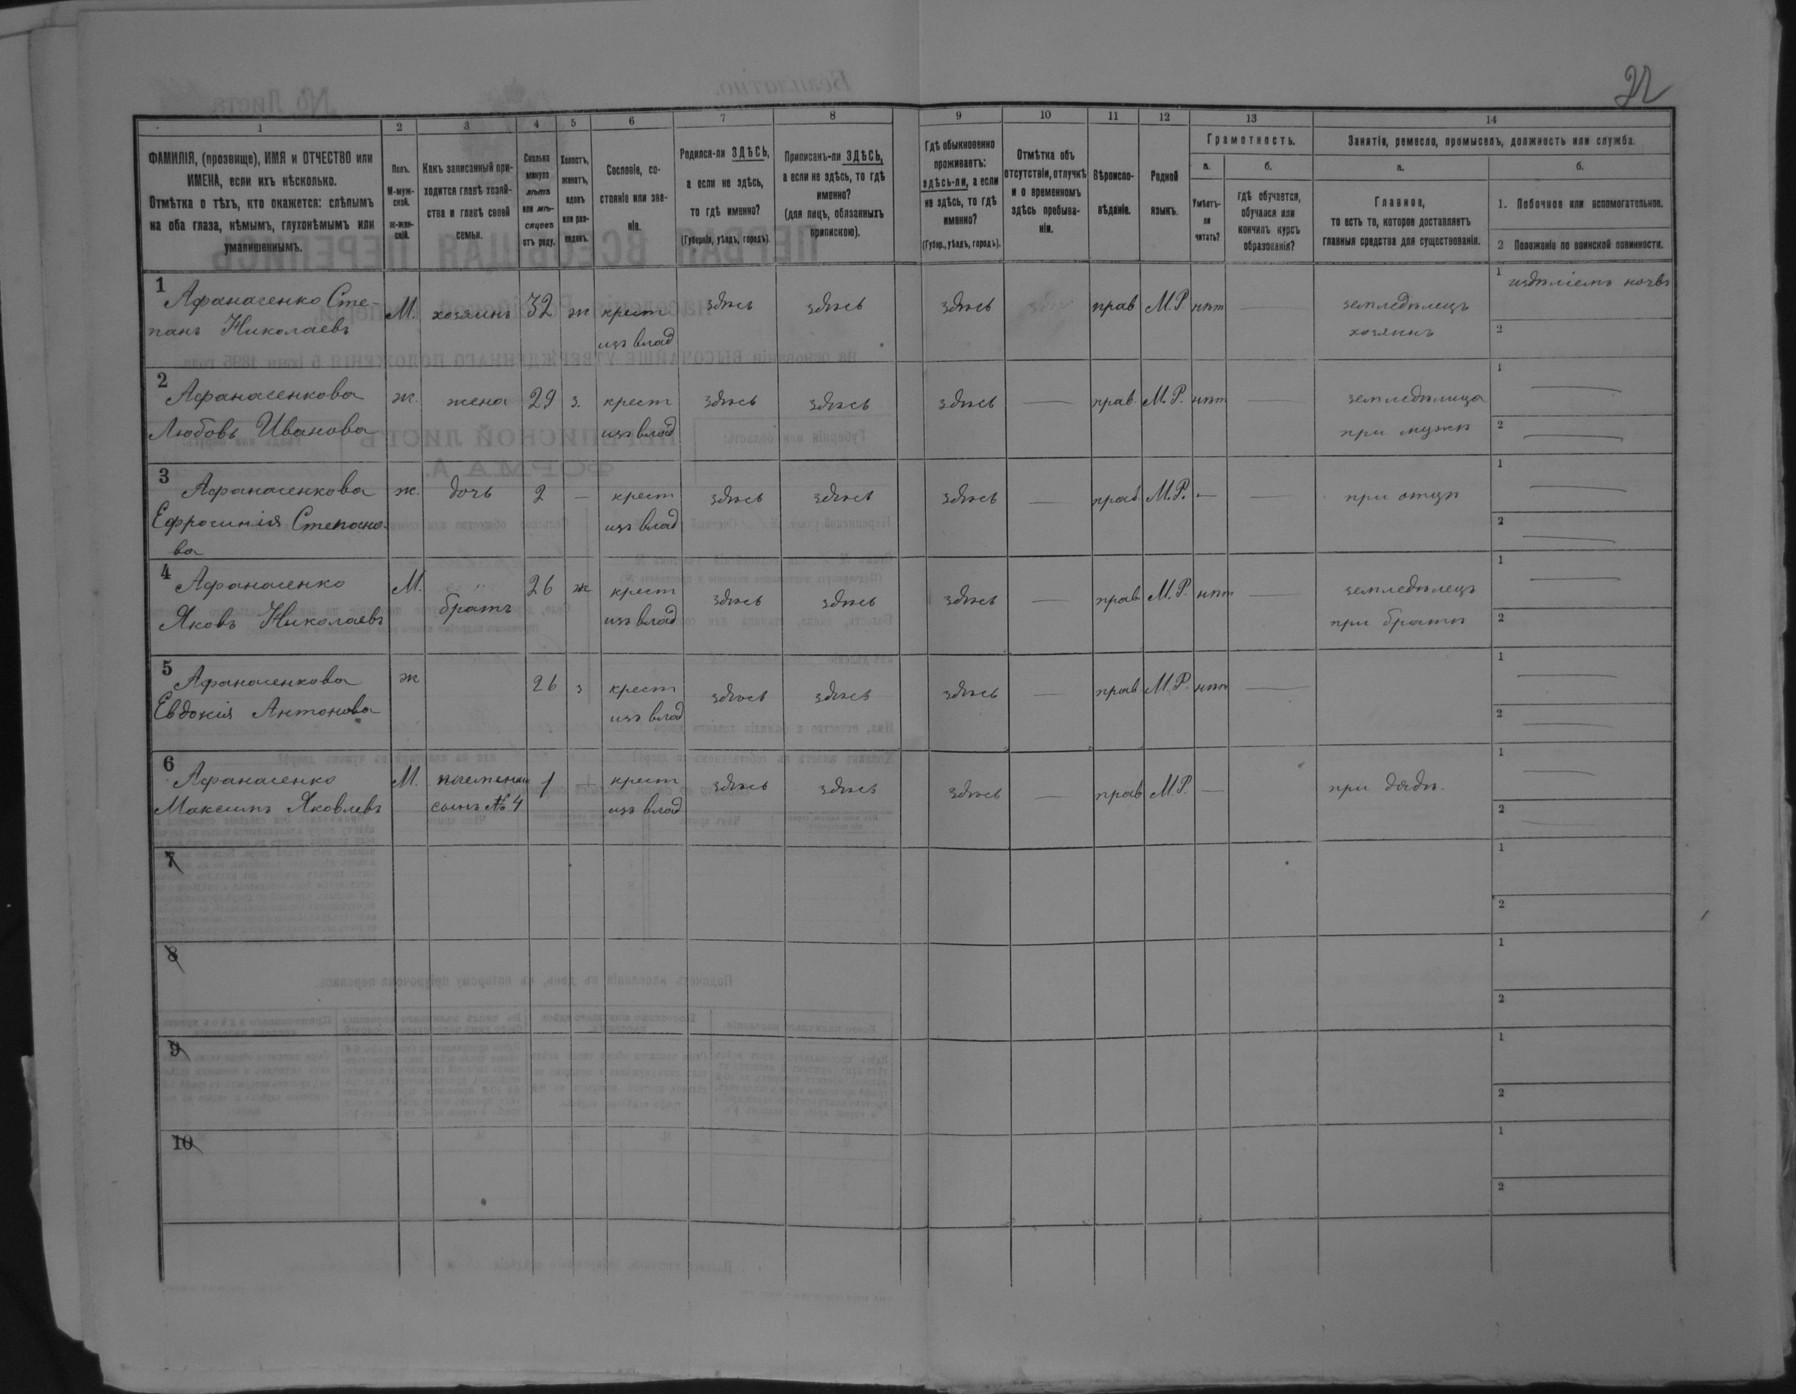 22
1 2 3 4 5 6 7 8 9 10 11 12 13 14
ФАМИЛІЯ, (прозвище), ИМЯ и ОТЧЕСТВО или
ИМЕНА, если ихъ нѣсколько.
Отмѣтка о тѣхъ, кто окажется: слѣпымъ
на оба глаза, нѣмымъ, глухонѣмымъ или
умалишеннымъ.
Полъ.
М-муж-
ской.
ж-жен-
скій.
Какъ записанный при-
ходится главѣ хозяй-
ства и главѣ своей
семьи.
Сколько
минуло
лѣтъ
или мѣ-
сяцевъ
отъ роду.
Холостъ,
женатъ,
вдовъ
или раз-
веденъ.
Сословіе, со-
стояніе или зва-
ніе.
Родился-ли ЗДѢСЬ,
а если не здѣсь,
то гдѣ именно?
(Губернія, уѣздъ, городъ).
Приписанъ-ли ЗДѢСЬ,
а если не здѣсь, то гдѣ
именно?
(для лицъ, обязанныхъ
припискою).
Гдѣ обыкновенно
проживаетъ:
здѣсь-ли, а если
не здѣсь, то гдѣ
именно?
(Губер., уѣздъ, городъ).
Отмѣтка объ
отсутствіи, отлучкѣ
и о временномъ
здѣсь пребыва-
ніи.
Вѣроиспо-
вѣданіе.
Родной
языкъ.
Грамотность.
а.
Умѣетъ-
ли
читать?
б.
гдѣ обучается,
обучался или
кончилъ курсъ
образованія?
Занятія, ремесло, промыселъ, должность или служба.
а.
Главное,
то есть то, которое доставляетъ
главныя средства для существованія.
б.
1. Побочное или вспомогательное.
2 Положеніе по воинской повинности.
1
Афанасенко Сте-
панъ Николаевъ
М. хозяинъ 32 ж крест
изъ влад
здѣсь здѣсь здѣсь прав М.Р нѣт
земледѣлецъ
хозяинъ
1
2
2
Афанасенкова
Любовь Иванова
ж. жена 29 з. крест
изъ влад
здѣсь здѣсь здѣсь — прав. М.Р. нѣт —
земледѣлица
при мужѣ
1 —
2 —
3
Афанасенкова
Ефросинія Степано-
ва
ж. дочь 2 — крест
изъ влад
здѣсь здѣсь здѣсь — прав М.Р. — —
при отцѣ
1 —
2 —
4
Афанасенко
Яковъ Николаевъ
М. братъ 26 ж крест
изъ влад
здѣсь здѣсь здѣсь — прав М.Р. нѣт —
земледѣлецъ
при братѣ
1 —
2 —
5
Афанасенкова
Евдокія Антонова
ж 26 з крест
изъ влад
здѣсь здѣсь здѣсь — прав М.Р. нѣт —
1 —
2 —
6
Афанасенко
Максимъ Яковлевъ
М. племенни
сынъ № 4
1 крест
изъ влад
здѣсь здѣсь здѣсь — прав М.Р. —
при дядѣ.
1 —
2 —
7
1
2
8
1
2
9
1
2
10
1
2